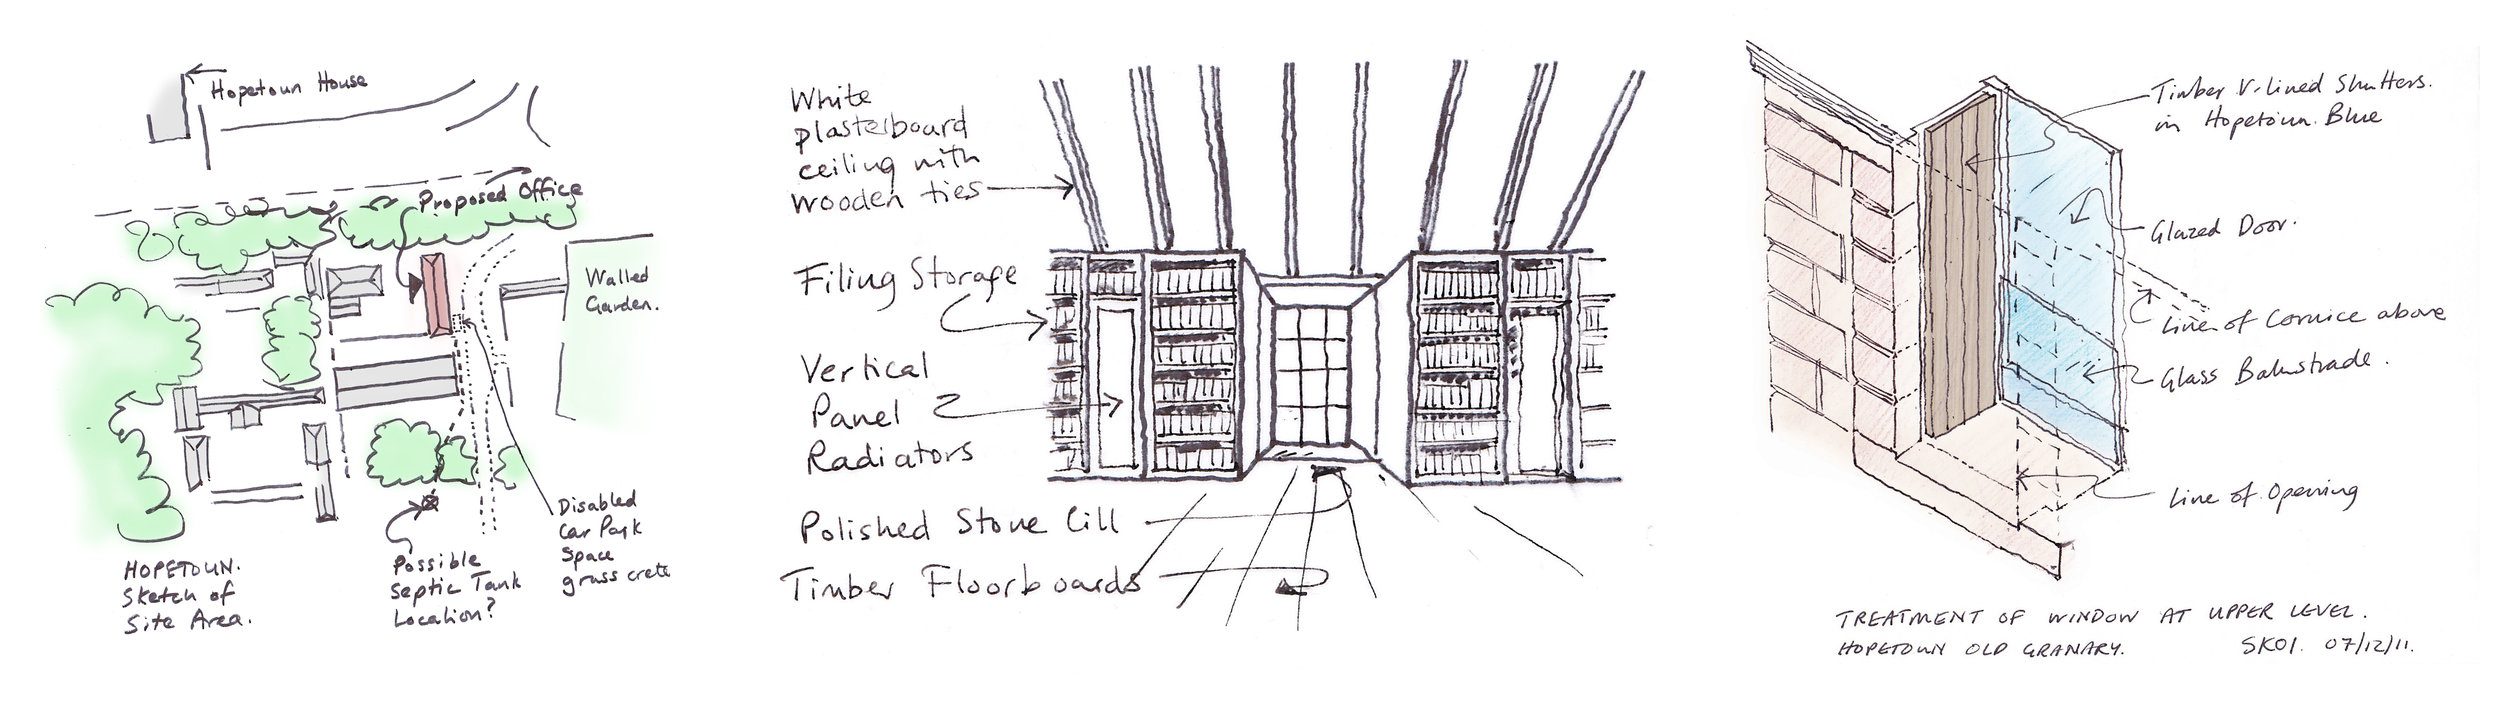 Hopetoun House
Proposed Office
Walled
Garden.
HOPETOUN.
Sketch of
Site Area.
Possible
Septic Tank
Location?
Disabled
Car Park
Space
grass crete
White
plasterboard
ceiling with
wooden ties
Filing Storage
Vertical
Panel
Radiators
Polished Stone Cill
Timber Floorboards
Timber V-lined Shutters.
in Hopetoun Blue
Glazed Door.
Line of Cornice above
Glass Balustrade.
Line of Opening
TREATMENT OF WINDOW AT UPPER LEVEL.
HOPETOUN OLD GRANARY.
SK01. 07/12/11.